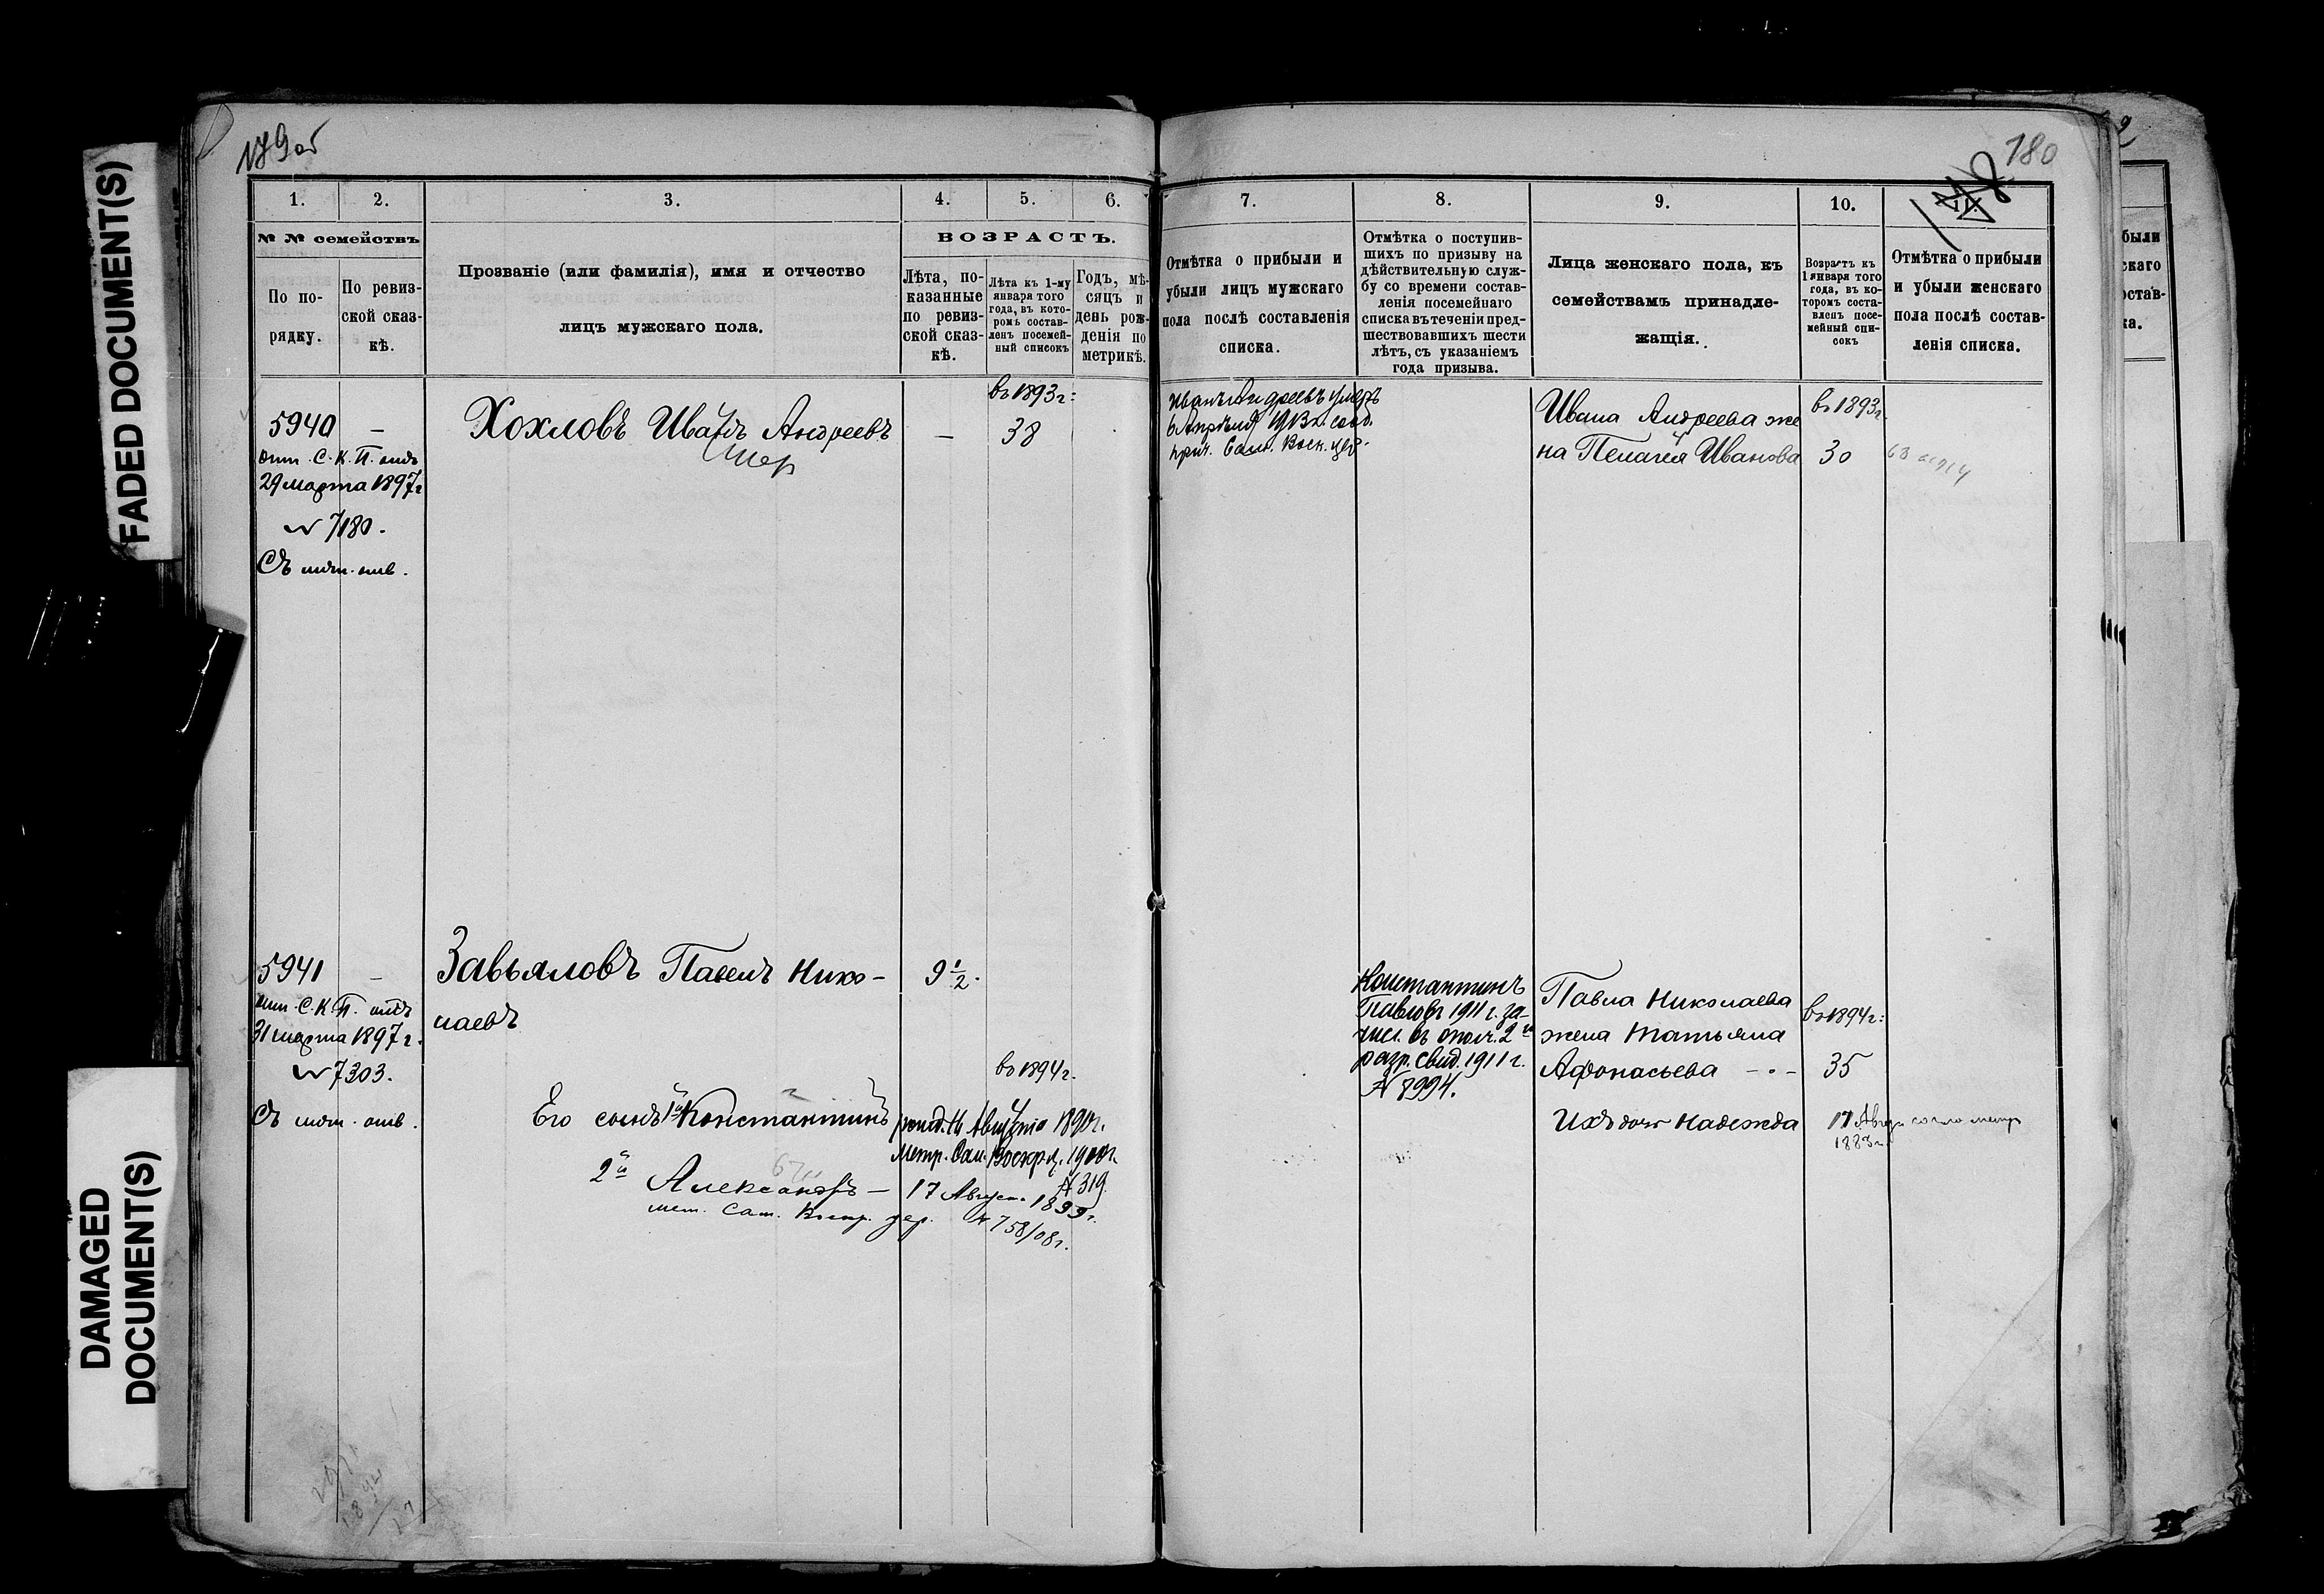 FADED DOCUMENT(S)
DAMAGED
DOCUMENT(S)
179об
1.
2.
3.
4.
5.
6.
№ № семействъ
По по-
рядку.
По ревиз-
ской сказ-
кѣ.
Прозваніе (или фамилія), имя и отчество
лицъ мужскаго пола.
ВОЗРАСТЪ.
Лѣта, по-
казанные
по ревиз-
ской сказ-
кѣ.
Лѣта къ 1-му
января того
года, въ кото-
ромъ состав-
ленъ посемей-
ный списокъ
Годъ, мѣ-
сяцъ и
день рож-
денія по
метрикѣ.
въ 1893 г:
5940 —
Хохловъ Иванъ Андреевъ
— 38
умер
опп. С. К. П. отъ
29 марта 1897 г
№ 7180.
Съ
5941 —
Завьяловъ Павелъ Нико-
лаевъ
9 1/2.
опп. С. К. П. отъ
31 марта 1897 г.
№ 7303.
Съ
въ 1894 г.
Его сынъ 1й Константинъ
рожд. 16 Августа 1890 г.
Метр. Сам. Воскр. ц. 1900 г.
№ 319.
2й Александръ — 17 Август. 1899 г.
мет. Сам. Воскр. цер. № 758/08 г.
180
7.
8.
9.
10.
Отмѣтка о прибыли и
убыли лицъ мужскаго
пола послѣ составленія
списка.
Отмѣтка о поступив-
шихъ по призыву на
дѣйствительную служ-
бу со времени состав-
ленія посемейнаго
списка въ теченіи пред-
шествовавшихъ шести
лѣтъ, съ указаніемъ
года призыва.
Лица женскаго пола, къ
семействамъ принадле-
жащія.
Возрастъ къ
1 января того
года, въ ко-
торомъ соста-
вленъ посе-
мейный спи-
сокъ
Отмѣтка о прибыли
и убыли женскаго
пола послѣ состав-
ленія списка.
Иванъ Андреевъ умеръ
6 Апрѣля
прич. Сам. Воск. цер.
Ивана Андреева же
на Пелагея Иванова
въ 1893 г.
30
Константинъ
Павловъ 1911 г. за-
числ. въ ополч. 2го
разр. свид. 1911 г.
№ 8994.
Павла Николаева
жена Татьяна
Афонасьева
въ 1894 г:
35
Ихъ доч Надежда
17
2
были
скаго
остав-
ка.